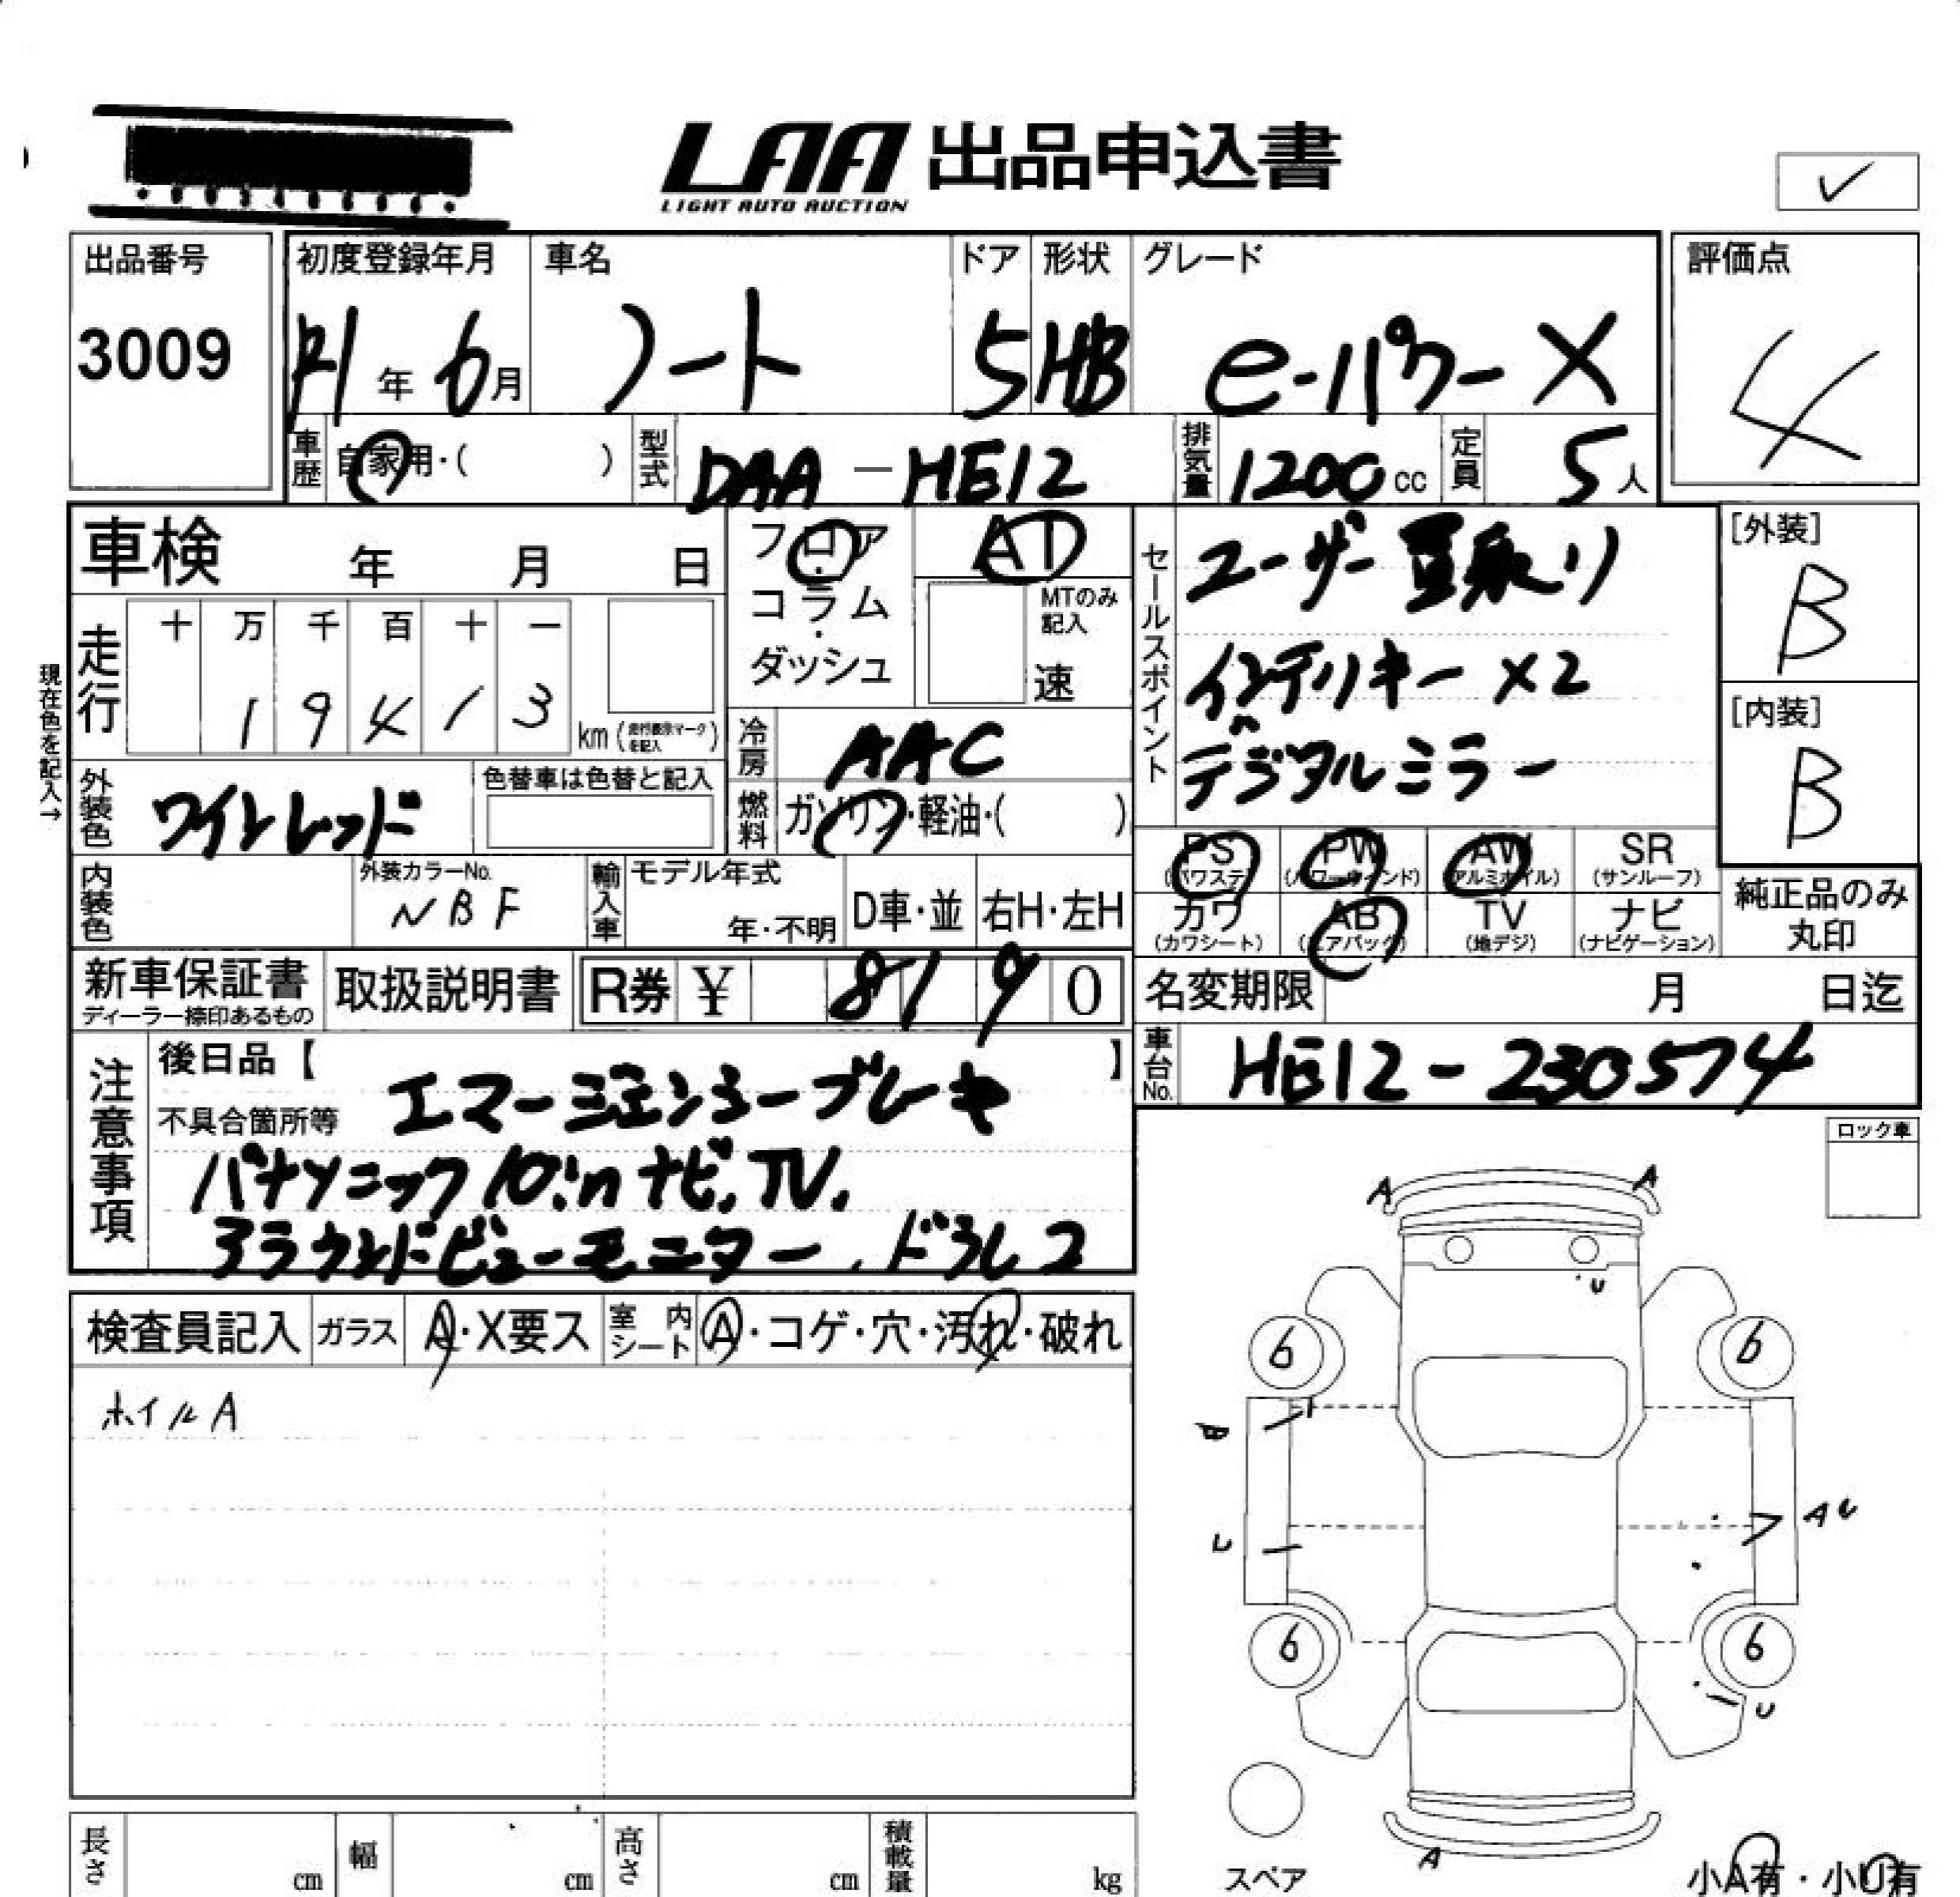 LAA 出品申込書
LIGHT AUTO AUCTION
✓
出品番号
3009
初度登録年月
R1年 6月
車名
ノート
ドア
5
形状
HB
グレード
e-パワー X
評価点
4
車歴
自家用・( )
型式
DAA-HE12
排気量
1200 cc
定員
5人
車検 年 月 日
フロア・コラム・ダッシュ
AT
MTのみ記入
速
セールスポイント
ユーザー買取り
インテリキー×2
デジタルミラー
[外装]
B
[内装]
B
現在色を記入→
走行
十 万 千 百 十 一
1 9 4 1 3
km (走行表示マークを記入)
冷房
AAC
外装色
ワインレッド
色替車は色替と記入
燃料
ガソリン・軽油・( )
PS (パワステ)
PW (パワーウインド)
AW (アルミホイル)
SR (サンルーフ)
カワ (カワシート)
AB (エアバッグ)
TV (地デジ)
ナビ (ナビゲーション)
純正品のみ
丸印
内装色
外装カラーNo.
NBF
輸入車
モデル年式
年・不明
D車・並
右H・左H
新車保証書
ディーラー捺印あるもの
取扱説明書
R券 ¥ 8190
名変期限 月 日迄
車台No.
HE12-230574
注意事項
後日品【 】
不具合箇所等
エマージェンシーブレーキ
パナソニック10inナビ.TV.
アラウンドビューモニター.ドラレコ
ロック車
A A
U
検査員記入
ガラス
A・X要ス
室内シート
A・コゲ・穴・汚れ・破れ
ホイルA
6 6
A U
U
6 6
U
A
スペア
小A有・小U有
長さ cm
幅 cm
高さ cm
積載量 kg